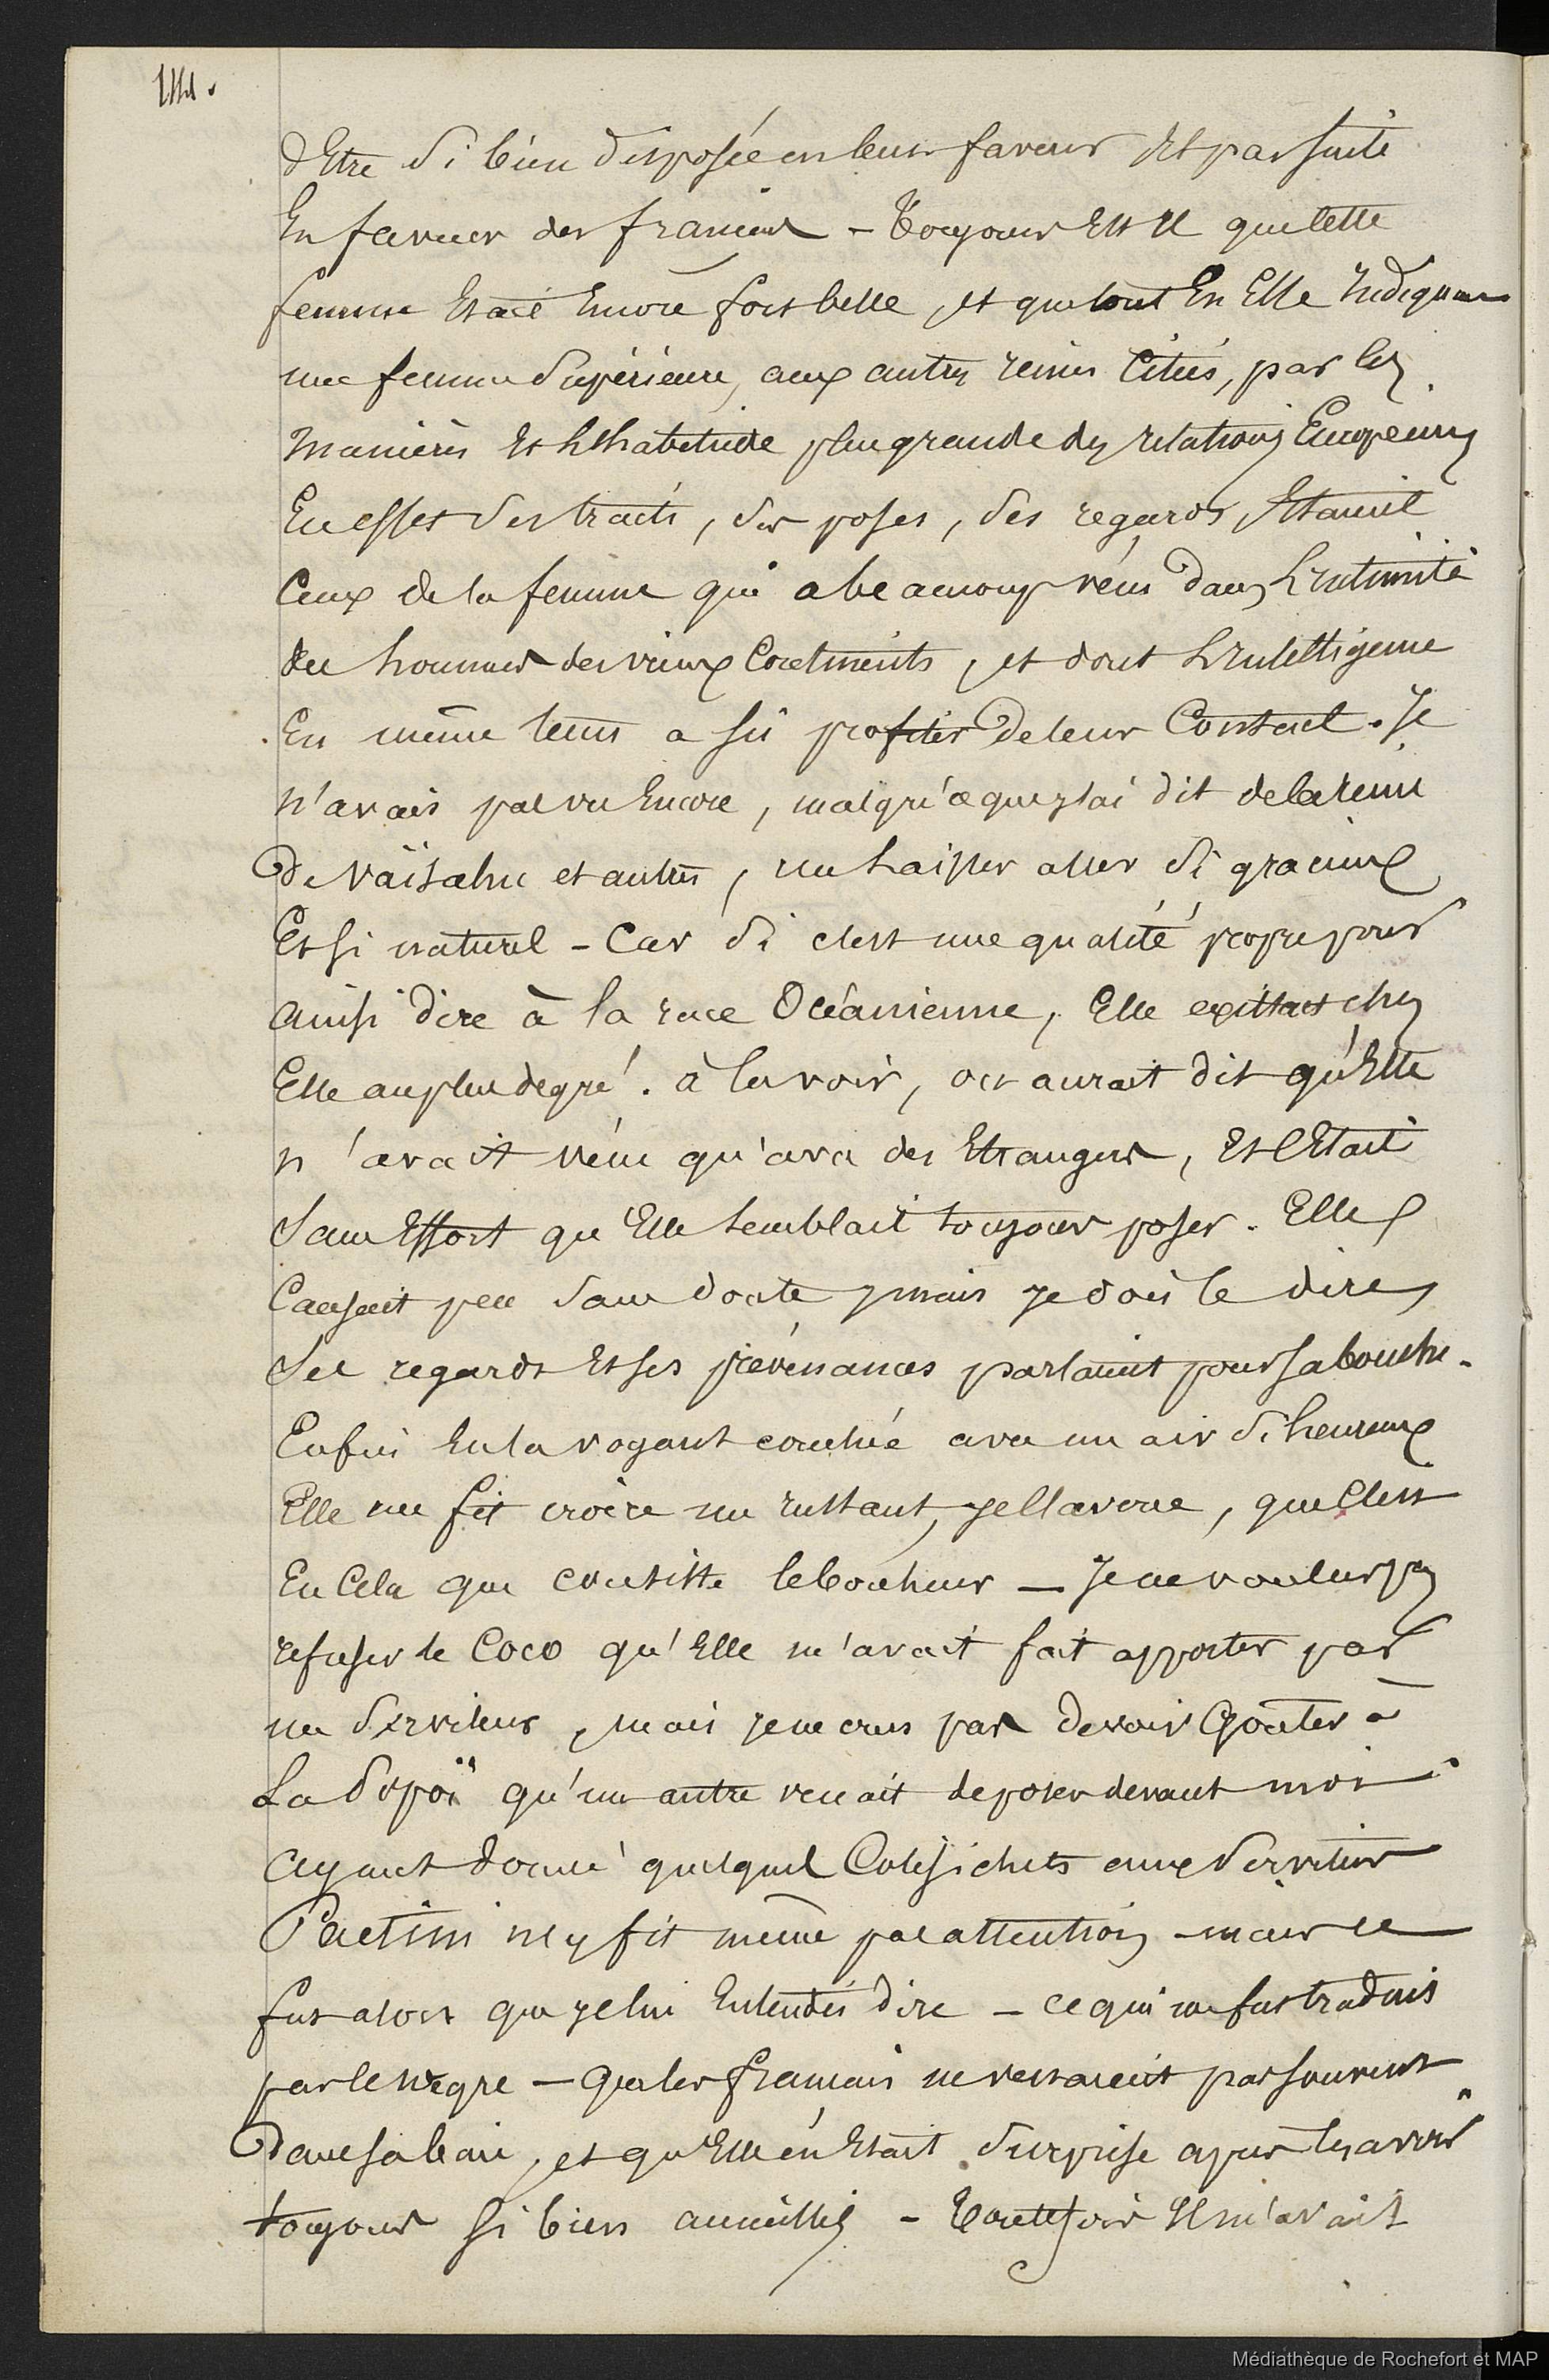 d'Etre si bien disposée en leur faveur Et par suite
En faveur des francais – Toujours Est Il que cette
femme Etait Encore fort belle, et que tout En Elle Indiquait
une femme Supérieure, aux autres reines Citées, par les
manières Et L'habitude plus grande des relations Européennes
En effet ses traits, ses poses, ses regards, Etaient
Ceux de la femme qui a beaucoup vécu dans L'intimité
des hommes des vieux Continents, et dont L'Intelligence
En même tems a sû profiter de leur Contact. Je
n'avais pas vu Encore, malgré ce que j'ai dit de la reine
De Vaïtahu et autres, un Laisser aller si gracieux
Et si naturel – Car si c'est une qualité propre pour
ainsi dire à la race Océanienne, Elle existait chez
Elle au plus degré. à la voir, on aurait dit qu'Elle
n'avait vécu qu'avec des Etrangers, Et C'Etait
Sans Effort qu'Elle semblait toujours poser. Elle
Causait peu sans doute, mais je dois le dire,
Ses regards Et ses prévenances parlaient pour sa bouche.
Enfin En la voyant couchée avec un air si heureux
Elle me fit croire un Instant, je l'avoue, que C'est
En Cela que consiste le bonheur – Je ne voulus pas
refuser le Coco qu'Elle m'avait fait apporter par
un Serviteur, mais je ne crus pas devoir Goûter à
La Popoï qu'un autre venait de poser devant moi
Ayant donné quelques Colifichets aux Serviteurs
Paetini n'y fit même pas attention – mais ce
fut alors que je lui Entendis dire – ce qui me fut traduis
par le nègre – Que les francais ne venaient pas souvent
Dans sa baie, et qu'Elle en Etait surprise après les avoir
toujours si bien accueillis – Toutefois Il m'avait
Médiathèque de Rochefort et MAP